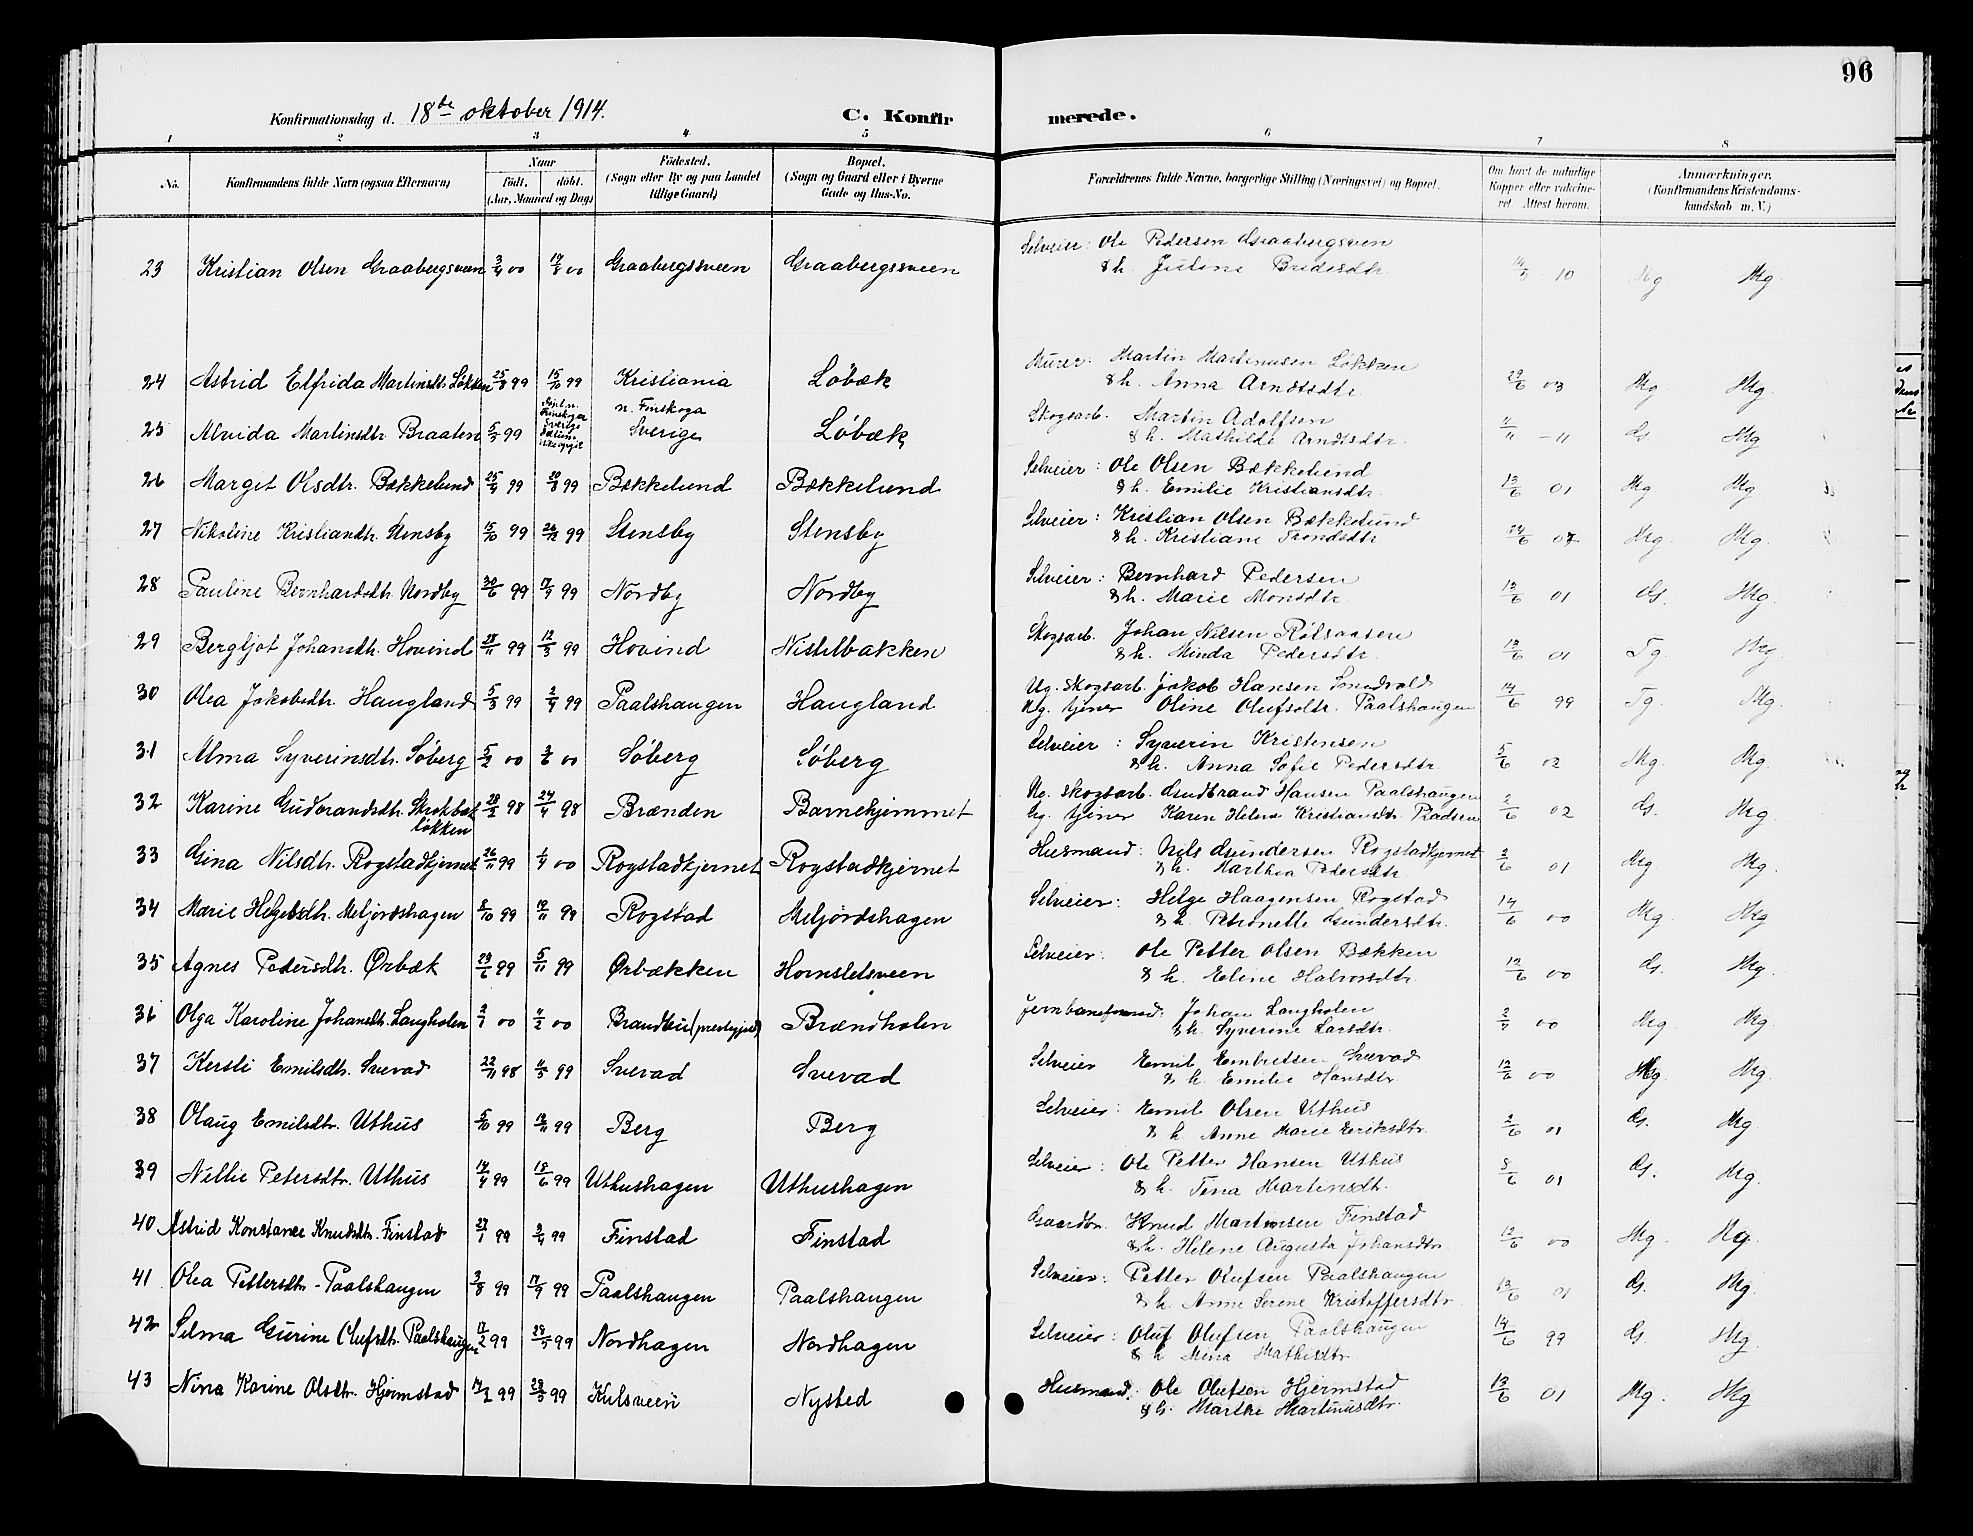 96
Konfirmationsdag d. 18de oktober 1914.
C. Konfirmerede.
1 2 3 4 5 6 7 8
No. Konfirmandens fulde Navn (ogsaa Efternavn) Naar født, døbt. (Aar, Maaned og Dag) Fødested. (Sogn eller By og paa Landet tillige Gaard) Bopæl. (Sogn og Gaard eller i Byerne Gade og Hus-No. Forældrenes fulde Navne, borgerlige Stilling (Næringsvei) og Bopæl. Om havt de naturlige Kopper eller vaccineret. Attest herom. Anmærkninger. (Konfirmandens Kristendomskundskab m. V.)
23 Kristian Olsen Graabergsveen 3/4 00 Graabergssveen Graabergssveen Selveier: Ole Pedersen Graabergsveen
& h. Juline 10 Mg Mg.
24 Astrid Elfrida Martinsdtr. Løkken 25/8 99 15/10 99 Kristiania Løbæk Murer: Martin Martinusen Løkken
& h. Anna Arndtsdtr. 29/6 03 Mg. Mg.
25 Alvida Martinsdtr. Braaten 5/3 99 n. Finskoga Sverige Løbæk Skogsarb. Martin Adolfsen
& h. Mathilde Arndtsdtr. 11/11 -11 dg. Mg
26 Margit Olsdtr. Bækkelund 25/4 99 20/8 99 Bækkelund Bækkelund Selveier: Ole Olsen Bækkelund
& h. Emilie Kristiansdtr. 13/6 01 Mg Mg
27 Nikoline Kristiandtr. Stensby 15/10 99 26/12 99 Stensby Stensby Selveier: Kristian Olsen Bækkelund
& h. Kristiane Trondsdtr. 24/6 07 Mg. Mg.
28 Pauline Bernhardsdtr. Nordby 30/6 99 17/9 99 Nordby Nordby Selveier: Bernhard Pedersen
& h. Marie Monsdtr. 13/6 01 dg. Mg.
29 Bergljot Johansdtr. Hovind 99 12/3 99 Hovind Nistelbakken Skogsarb. Johan Nilsen
& h. Minda Pedersdtr. 13/6 01 Tg. Mg.
30 Olea Jakobsdtr. Haugland 5/3 99 2/4 99 Paalshaugen Haugland Ug. Skogsarb. Jakob Hansen
Ug. tjener Oline Olufsdtr. Paalshaugen 14/6 99 Tg. Mg.
31 Alma Syverinsdtr. Søberg 5/2 00 3/6 00 Søberg Søberg Selveier: Syverin Kristensen
& h. Anna Sofie Pedersdtr. 5/6 02 Mg. Mg.
32 Karine Gudbrandsdtr. Skrukbæk løkken 28/2 98 24/4 98 Brænden Barnehjemmet Ug. skogsarb. Gudbrand Hansen Paalshaugen
Ug. tjener Karen Helene Kristiansdtr. 2/6 02 dg. Mg.
33 Gina Nilsdtr. Rogstadkjernet 26/11 99 1/4 00 Rogstadkjernet Rogstadkjernet Husmand: Nils Gundersen Rogstadkjernet
& h. Marthea Pedersdtr 2/6 01 Mg. Mg.
34 Marie Helgesdtr. Meljordshagen 8/10 99 19/11 99 Rogstad Meljordshagen Selveier: Helge Haagensen Rogstad
& h. Petronelle Gundersdtr. 14/6 00 Mg. Mg
35 Agnes Pedersdtr. Ørbæk 23/6 99 5/11 99 Ørbækken Hornsletsveen Selveier: Ole Petter Olsen Bækken
& h. Eline Halvorsdtr. 12/6 00 dg. Mg.
36 Olga Karoline Johansdtr. Langholen 2/1 00 4/2 00 Brandbu (prestegjeld) Brændholen Jernbaneformand. Johan Langholen
& h. Syverine Larsdtr. 00 Mg. Mg.
37 Kersti Emilsdtr. Svevad 22/11 98 4/5 99 Svevad Svevad Selveier Emil Embretsen Svevad
& h. Emilie Hansdtr. 12/6 00 Mg. Mg.
38 Olaug Emilsdtr. Uthus 5/10 99 19/11 99 Berg Berg Selveier: Emil Olsen Uthus
& h. Anne Marie Eriksdtr. 2/6 01 dg. Mg.
39 Nellie Petersdtr. Uthus 14/4 99 18/6 99 Uthushagen Uthushagen Selveier: Ole Petter Hansen Uthus
& h. Tena Martinsdtr. 8/6 01 dg. Mg.
40 Astrid Konstance Knudsdtr. Finstad 27/1 99 3/4 99 Finstad Finstad Gaardbr. Knud Martinsen Finstad
& h. Helene Augusta Johansdtr. 12/6 00 Mg. Mg.
41 Olea Pettersdtr. Paalshaugen 3/8 99 17/9 99 Paalshaugen Paalshaugen Selveier: Petter Olufsen Paalshaugen
& h. Anne Serene Kristoffersdtr. 13/6 01 dg. Mg.
42 Selma Gurine Olufsdtr. Paalshaugen 17/2 99 28/5 99 Nordhagen Nordhagen Selveier: Oluf Olufsen Paalshaugen
& h Mina Mathisdtr. 14/6 99 dg. Mg.
43 Nina Karine Olsdtr. Hjermstad 17/2 99 28/5 99 Kulsveen Nysted Husmand: Ole Olufsen Hjermstad
& h. Marthe Martinusdtr. 13/6 01 Mg. Mg